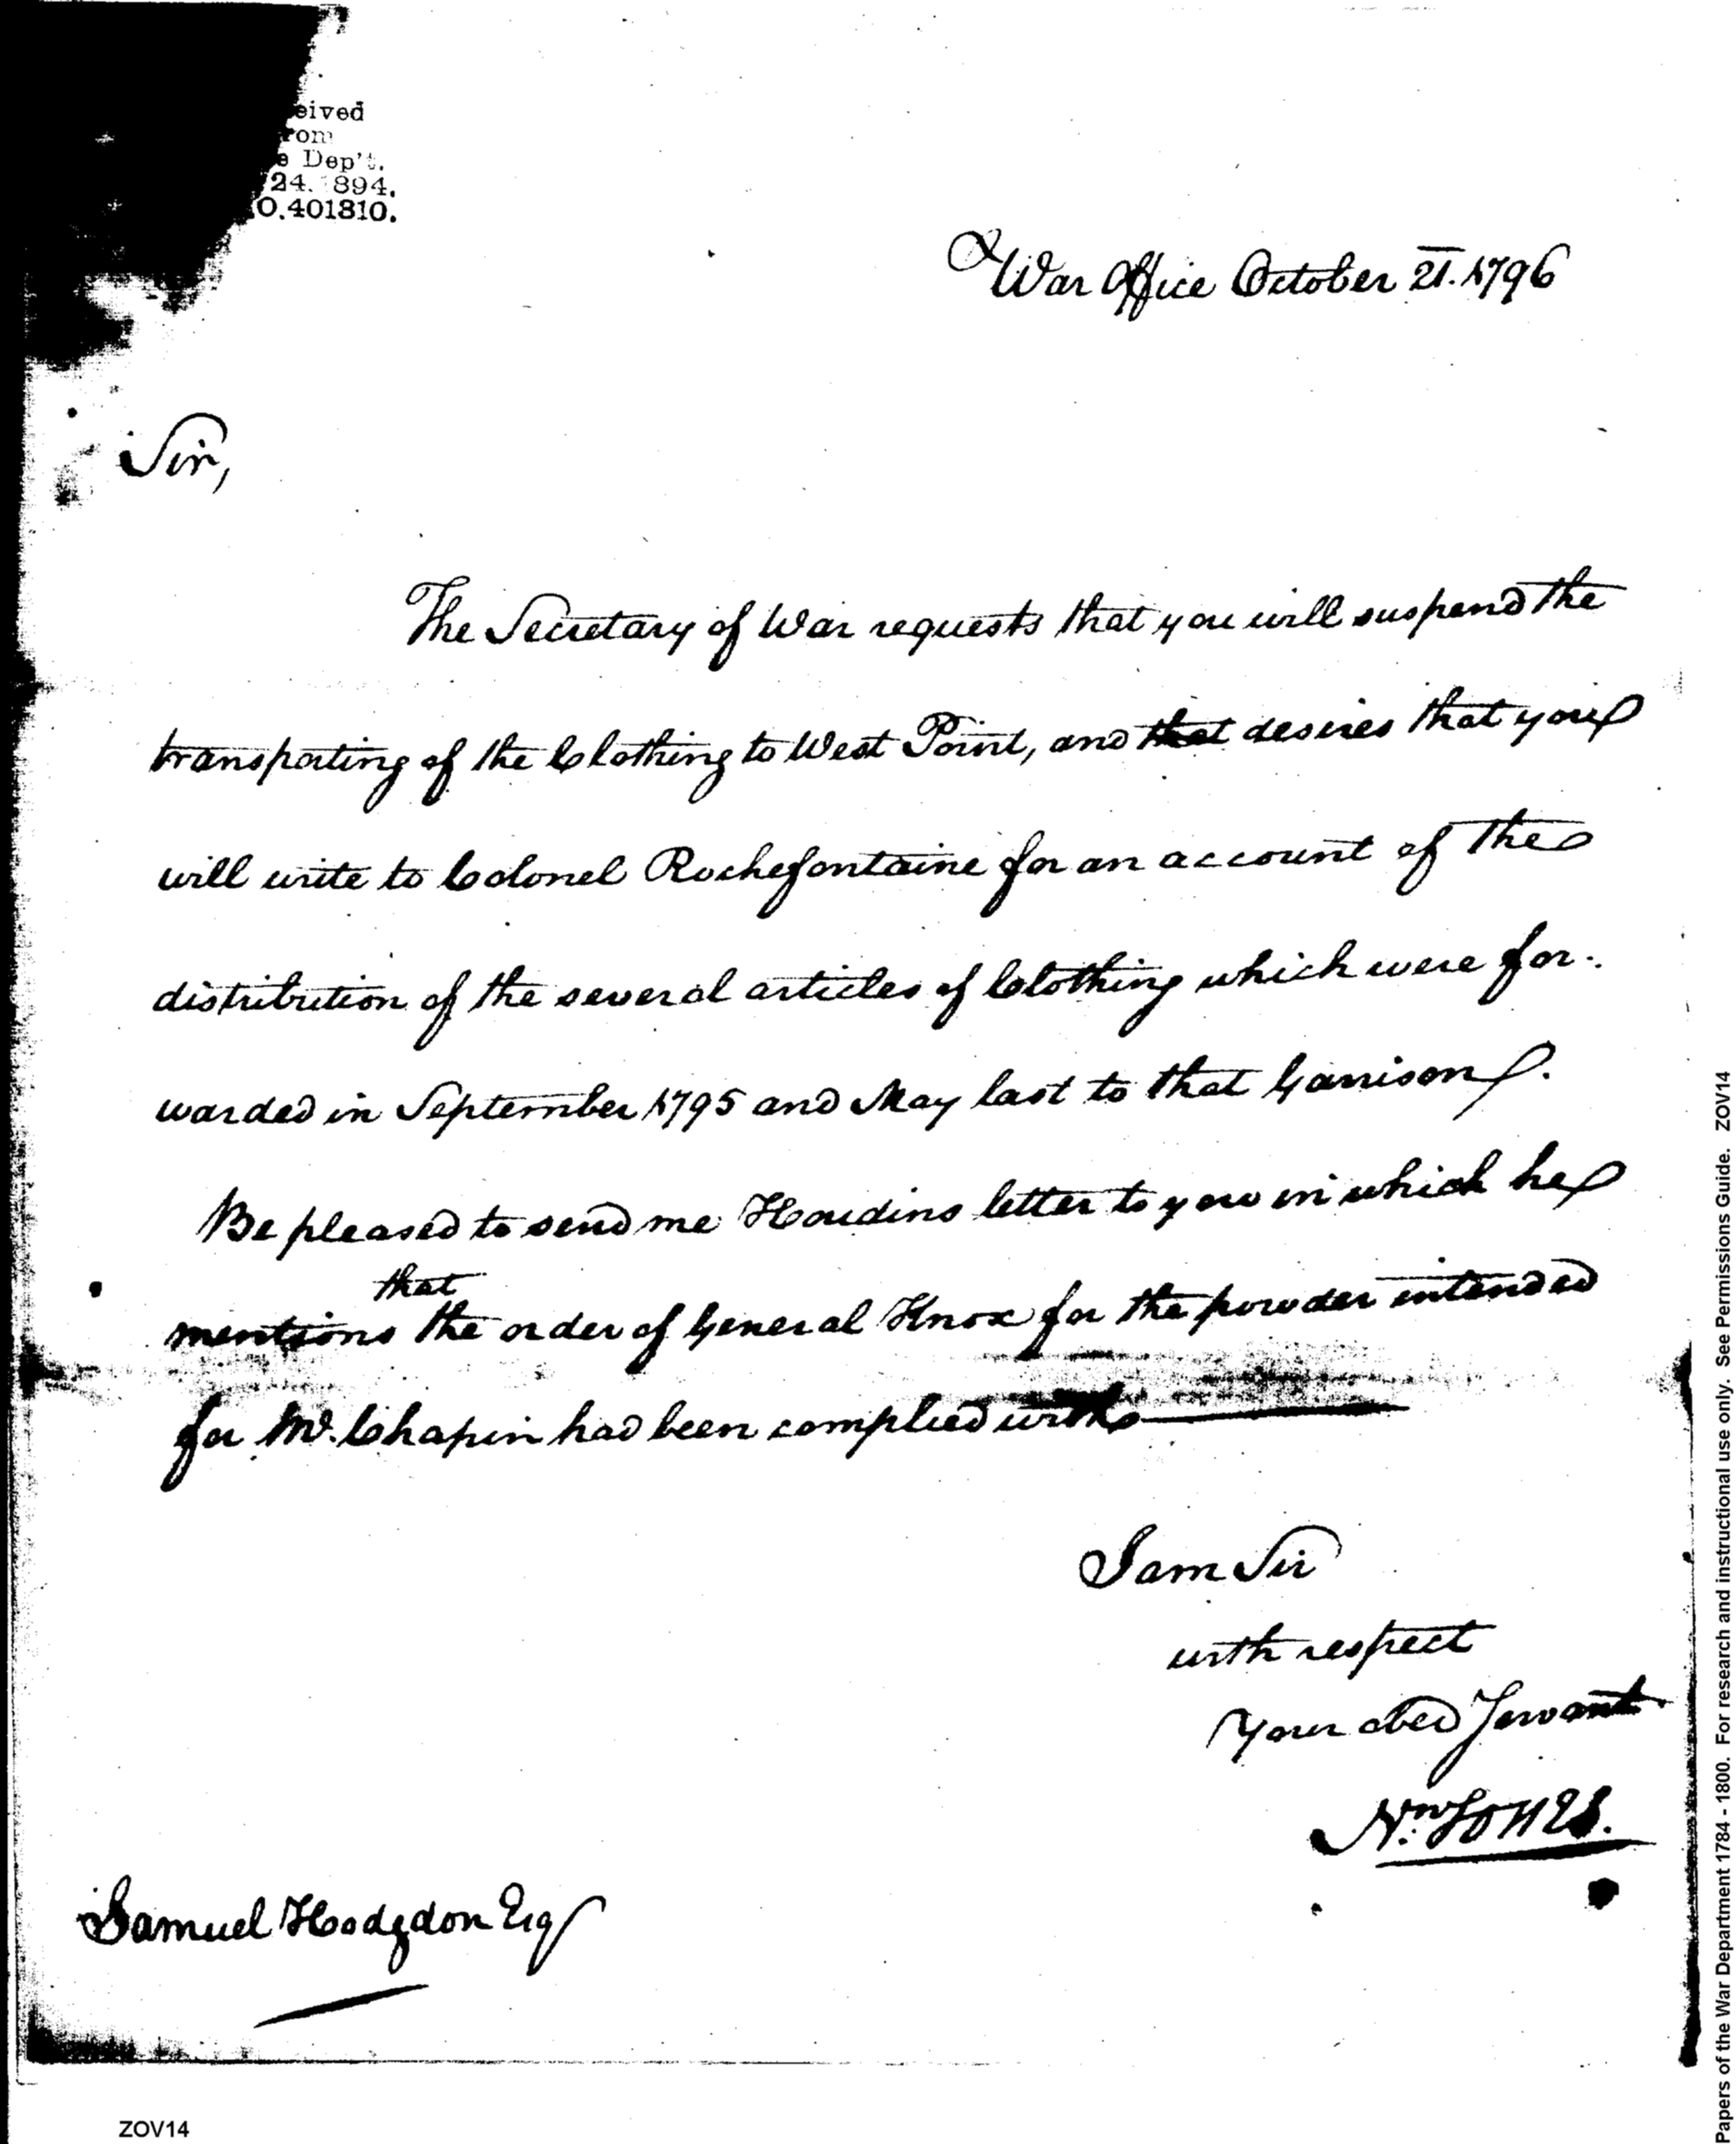 eived
rom
e Dep't.
24. 1894.
O.401810.
War Office October 21. 1796
Sir,
The Secretary of War requests that you will suspend the
transporting of the Clothing to West Point, and that desires that you
will write to Colonel Rochefontaine for an account of the
distribution of the several articles of Clothing which were for-
warded in September 1795 and May last to that Garrison.
Be pleased to send me Houdins letter to you in which he
that
mentions the order of General Knox for the powder intended
for Mr. Chapin had been complied with
I am Sir
with respect
Your obed Servant
Samuel Hodgdon Esq
ZOV14
Papers of the War Department 1784 - 1800. For research and instructional use only. See Permissions Guide. ZOV14